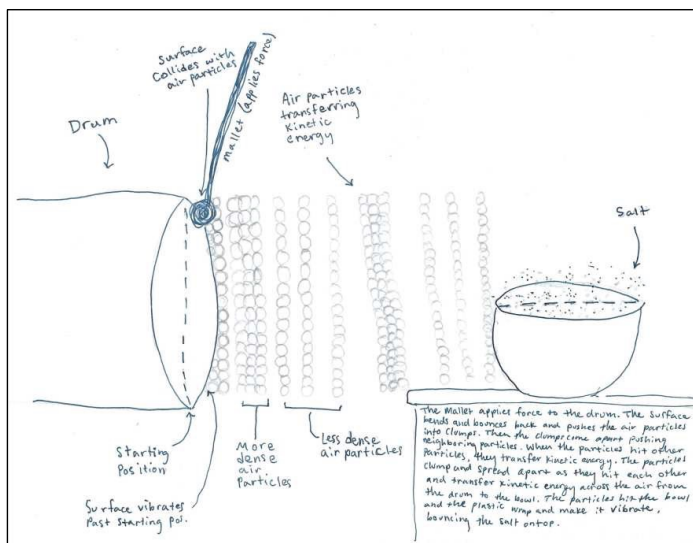 Surface
collides with
air particles
mallet (applies force)
Drum
Air particles
transferring
kinetic
energy
Salt
Starting
Position
More
dense
air
Particles
Less dense
air particles
Surface vibrates
Past starting poi.
The mallet applies force to the drum. The surface
bends and bounces back and pushes the air particles
into clumps. Then the clumps come apart pushing
neighboring particles. When the particles hit other
Particles, they transfer kinetic energy. The particles
clump and spread apart as they hit each other
and transfer kinetic energy across the air from
the drum to the bowl. The particles hit the bowl
and the plastic wrap and make it vibrate,
bouncing the salt on top.